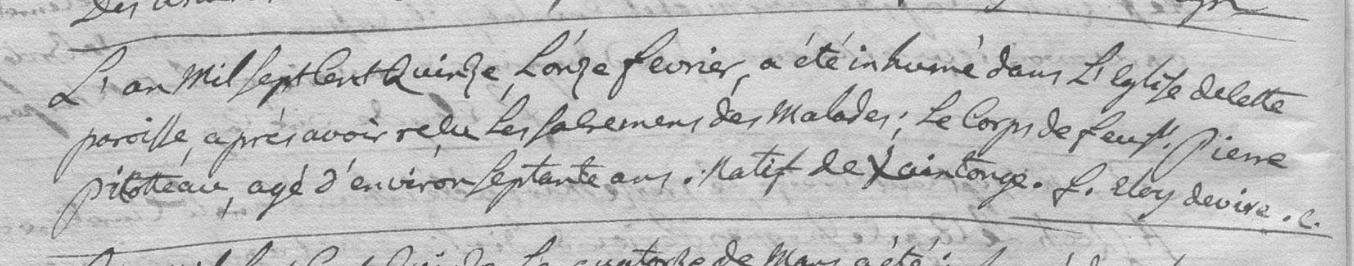 L'an Mil sept Cent Quinze, L'onze fevrier, a été inhumé dans L'Eglise de Cette
paroisse, aprés avoir reçu Les sacremens des Malades; Le Corps de feu Sr. Pierre
pitotteau, agé d'environ septante ans. Natif de Xaintonge. f. Eloy de vire. c.
quatorze de Mars a été